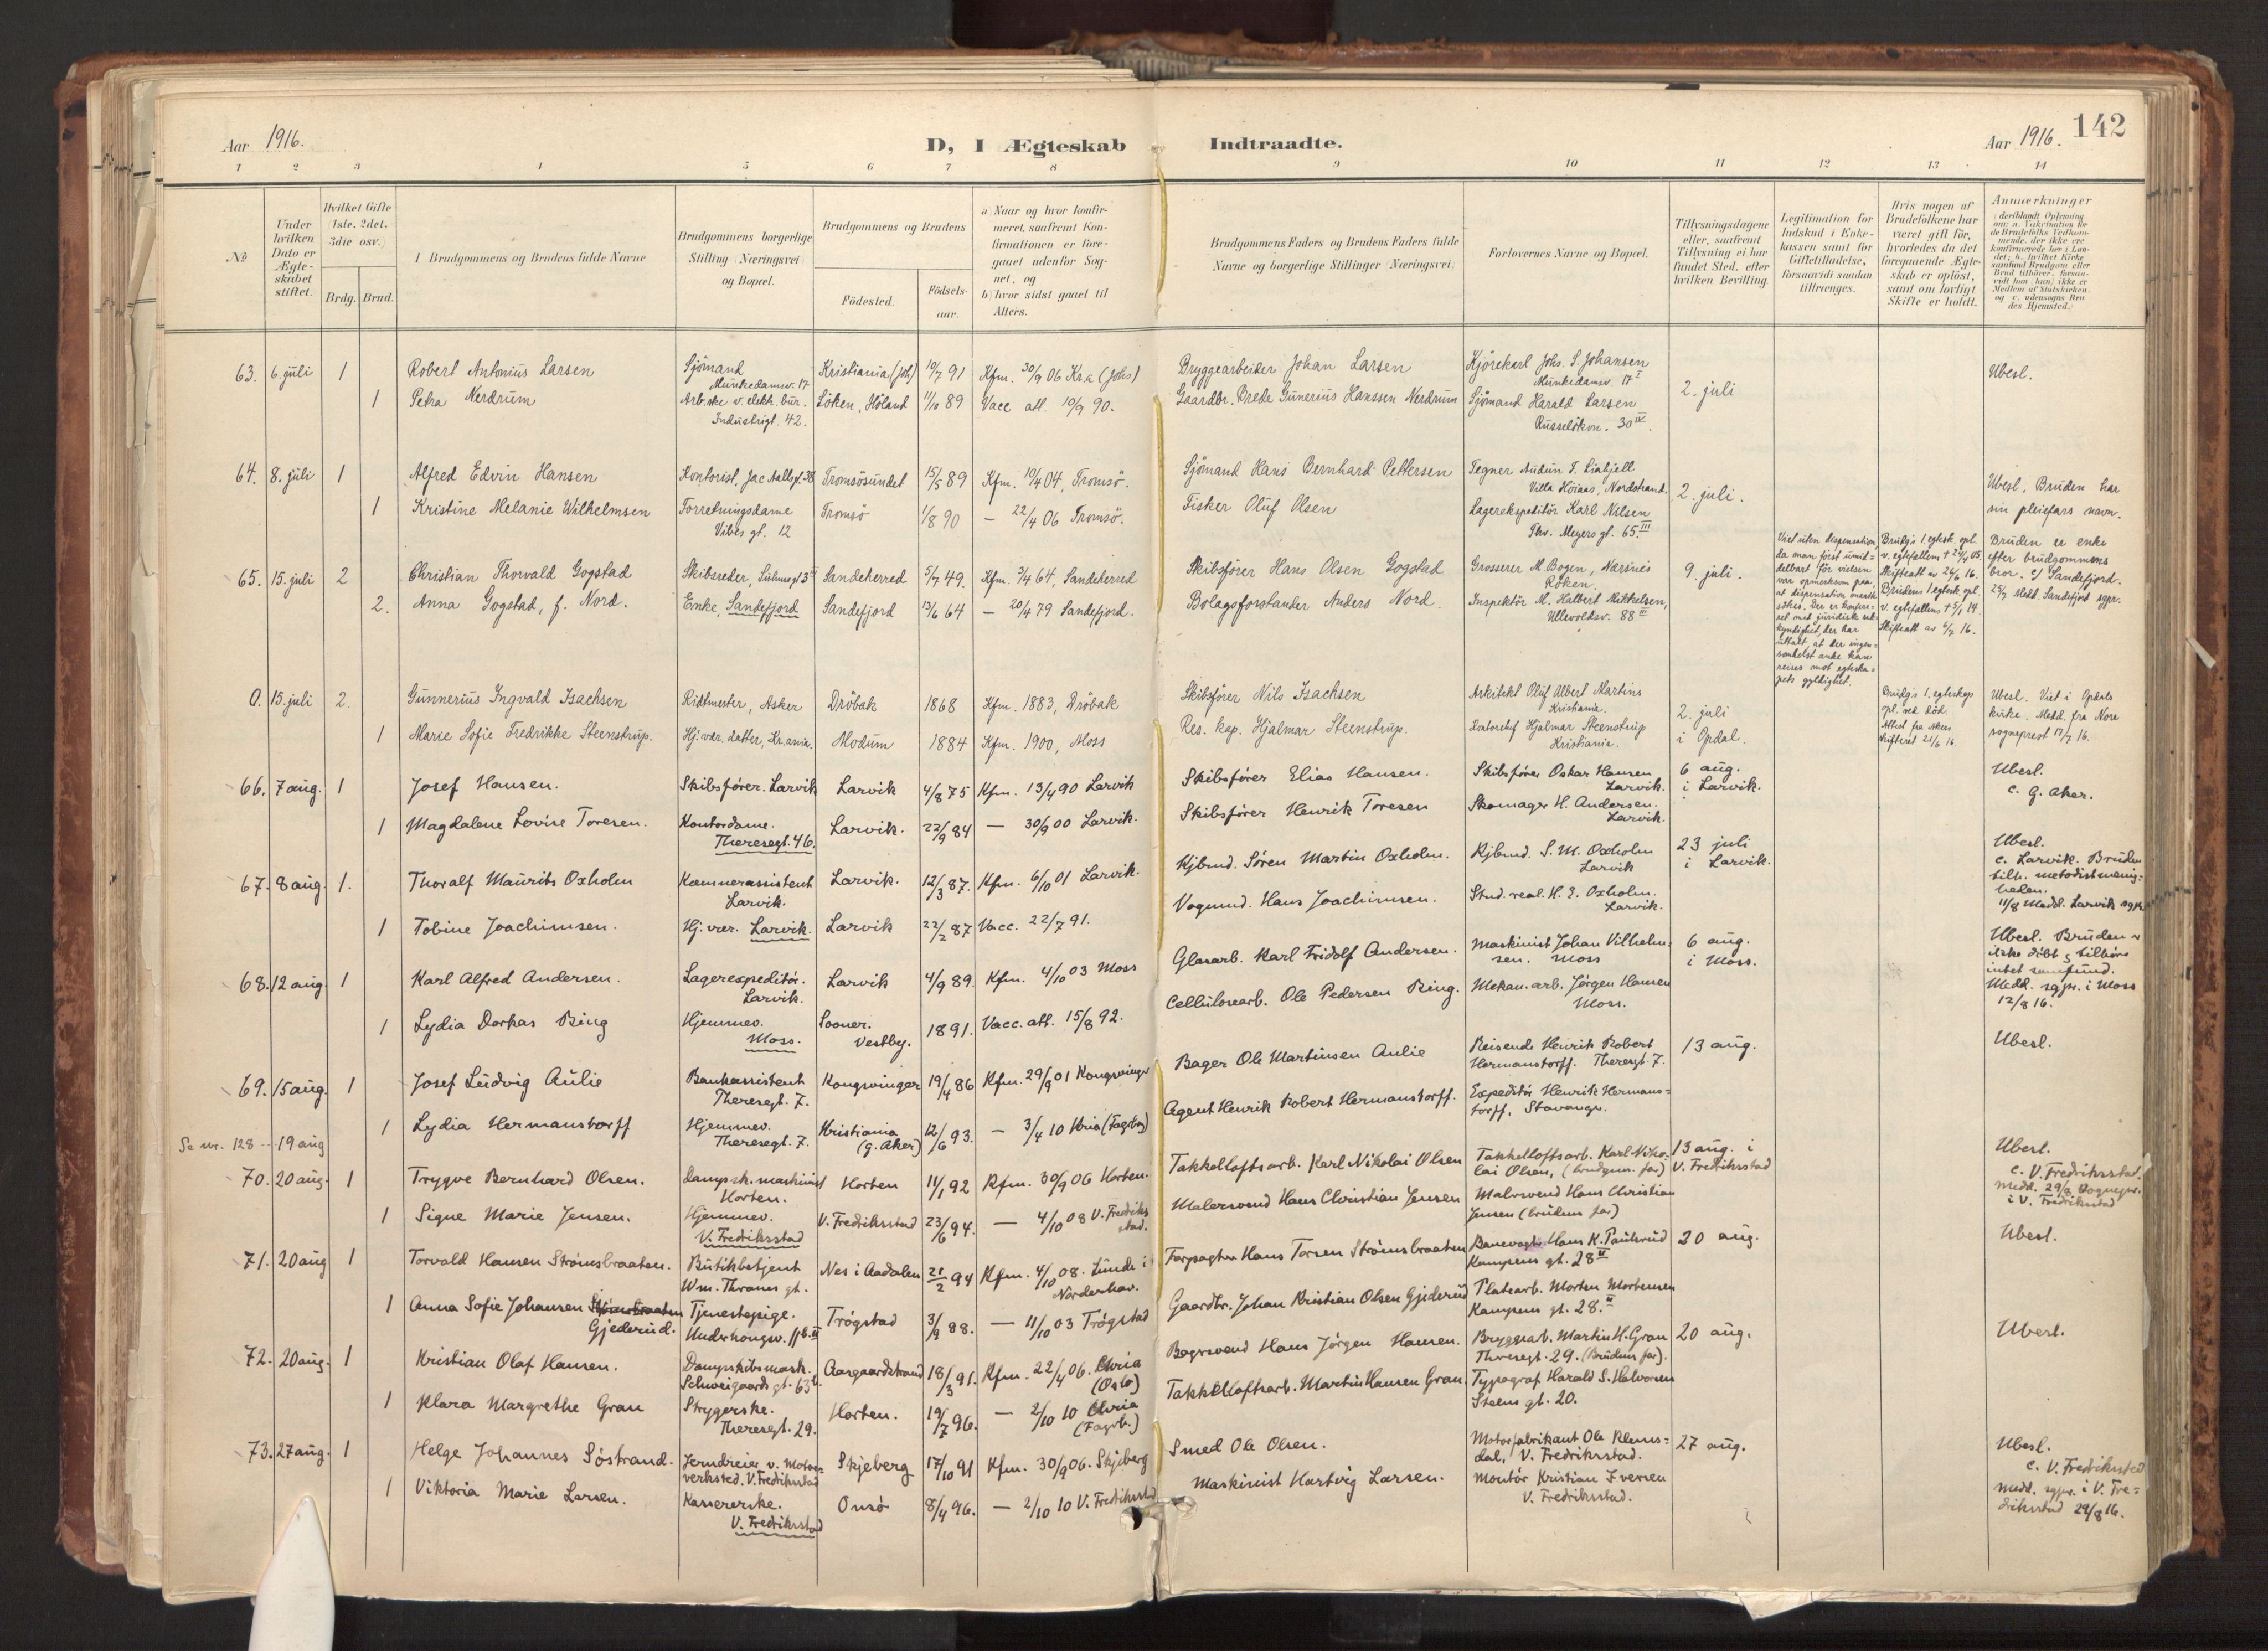 Aar 1916.
D, I Ægteskab Indtraadte.
Aar 1916. 142
1 2 3 4 5 6 7 8 9 10 11 12 13 14
№
Under hvilken Dato er Ægteskabet stiftet.
Hvilket Gifte (1ste, 2det, 3die osv.)
Brdg. Brud.
I Brudgommens og Brudens fulde Navne
Brudgommens borgerlige Stilling (Næringsvei) og Bopæl.
Brudgommens og Brudens
Födested. Födsels-aar.
a) Naar og hvor konfirmeret, saafremt Konfirmationen er foregaaet udenfor Sognet, og
b) hvor sidst gaaet til Alters.
Brudgommens Faders og Brudens Faders fulde Navne og borgerlige Stillinger (Næringsvei).
Forlovernes Navne og Bopæl.
Tillysningsdagene eller, saafremt Tillysning ei har fundet Sted, efter hvilken Bevilling.
Legitimation for Indskud i Enkekassen samt for Giftetilladelse, forsaavidt saadan tiltrænges.
Hvis nogen af Brudefolkene har været gift för, hvorledes da det foregaaende Ægteskab er oplöst, samt om lovligt Skifte er holdt.
Anmærkninger
63. 6 juli 1 Robert Antonius Larsen Sjömand Munkedamsv. 17 Kristiania (Joh) 10/7 91 Kfm. 30/9 06 Kr.a (Johs) Bryggearbeider Johan Larsen Kjörekarl Johs. S. Johansen Munkedamsv. 17 I 2. juli Ubesl.
1 Petra Nerdrum Arb.ske v. elektr. bur. Industrigt. 42. Löken, Höland 11/10 89 Vacc att. 10/9 90. Gaardbr. Brede Gunerius Hanssen Nerdrum Sjömand Harald Larsen Russelökvn. 30 IV.
64. 8. juli 1 Alfred Edvin Hansen Kontorist, Jac Aallsgt. 38 Tromsösundet 15/5 89 Kfm. 10/4 04, Tromsö. Sjömand Hans Bernhard Pettersen Tegner Audun T. Liabjell Villa Höiaas, Nordstrand. 2. juli. Ubesl. Bruden har sin pleiefars navn.
1 Kristine Melanie Wilhelmsen Forretningsdame Vibes gt. 12 Tromsö 1/8 90 — 22/4 06 Tromsö. Fisker Oluf Olsen Lagerekspeditör Karl Nilsen Thv. Meyers gt. 65 III
65. 15. juli 2 Christian Thorvald Gogstad Skibsreder, Suhmsgt 3 II Sandeherred 5/7 49. Kfm. 3/4 64, Sandeherred Skibsfører Hans Olsen Gogstad Grosserer M. Bogen, Nærsnes Röken. 9. juli.
2. Anna Gogstad, f. Nord. Enke, Sandefjord Sandefjord 13/6 64 — 20/4 79 Sandefjord. Bolagsforstander Anders Nord. Inspektör M. Halbert Mikkelsen, Ullevoldsv. 88 III
Viet uten dispensation da man först umiddelbart för vielsen var opmerksom paa, at dispensation maatte sökes. Der er konfereret med juridisk sakkyndighet, der har uttalt, at der ingensomhelst anke kan reises mot egteskapets gyldighet.
Brudg's 1. egtesk. opl. v. egtefællens † 24/4 05. Skifteatt av 26/6 16. Brudens 1 egtesk. opl. v. egtefællens † 5/1 14. Skifteatt av 6/7 16.
Bruden er enke efter brudgommens bror. c/ Sandefjord. 25/7 Medd. Sandefjord sgpr.
0. 15. juli 2. Gunnerius Ingvald Isachsen Ridtmester, Asker Dröbak 1868 Kfm. 1883, Dröbak Skibsfører Nils Isachsen Arkitekt Oluf Albert Martins Kristiania. 2. juli i Opdal. Brudg's 1. egteskap opl. ved död. Attest fra Akers skifteret 21/6 16. Ubesl. Viet i Opdals kirke. Medd. fra Nore sogneprest 17/7 16.
1 Marie Sofie Fredrikke Steenstrup. Hj.vær. datter, Kr.ania. Modum 1884 Kfm. 1900, Moss Res. kap. Hjalmar Steenstrup. Kontorchef Hjalmar Steenstrup Kristiania.
66. 7 aug. 1 Josef Hansen. Skibsfører. Larvik Larvik 4/8 75 Kfm. 13/4 90 Larvik Skibsfører Elias Hansen. Skibsfører Oskar Hansen Larvik. 6 aug. i Larvik. Ubesl. c. G. Aker.
1 Magdalene Lovise Toresen. Kontordame. Theresegt. 46. Larvik. 22/9 84 — 30/9 00 Larvik. Skibsfører Henrik Toresen Skomager H. Andersen. Larvik.
67. 8 aug. 1. Thoralf Maurits Oxholm Kæmnerassistent Larvik. Larvik. 12/3 87. Kfm. 6/10 01 Larvik. Kjbmd. Søren Martin Oxholm. Kjbmd. S. M. Oxholm Larvik 23 juli i Larvik. Ubesl. c. Larvik. Bruden tilh. metodistmenigheden. 11/8 Medd. Larvik sgpr.
1 Tobine Joachimsen. Hj. vær. Larvik. Larvik 22/2 87 Vacc. 22/7 91. Vognmd. Hans Joachimsen. Stud. real. H. E. Oxholm. Larvik.
68. 12 aug. 1 Karl Alfred Andersen. Lagerexpeditör. Larvik. Larvik 4/9 89. Kfm. 4/10 03 Moss Glasarb. Karl Fridolf Andersen. Maskinist Johan Vilhelmsen. Moss 6 aug. i Moss. Ubesl. Bruden ikke döbt, tilhører intet samfund. Medd. sgpr. i Moss 12/8 16.
1 Lydia Dorkas Ring Hjemmev. Moss. Sooner. Vestby. 1891. Vacc. att. 15/8 92. Cellulosearb. Ole Pedersen Ring. Mekan. arb. Jørgen Hansen Moss.
69. 15 aug. 1 Josef Ludvig Aulie Bankassistent Theresegt. 7. Kongsvinger 19/4 86 Kfm. 29/9 01 Kongsvinger Bager Ole Martinsen Aulie Reisende Henrik Robert Hermanstorff. Theresegt. 7. 13 aug. Ubesl.
1 Lydia Hermanstorff Hjemmev. Theresegt. 7. Kristiania (G. Aker) 12/6 93. — 3/4 10 Kria (Fagerbg) Agent Henrik Robert Hermanstorff. Expeditör Henrik Hermanstorff, Stavanger.
Se nr. 128 -- 19 aug
70. 20 aug. 1 Trygve Bernhard Olsen. Dampsk. maskinist Horten. Horten 11/1 92 Kfm. 30/9 06 Horten. Takkelloftsarb. Karl Nikolai Olsen Takkelloftsarb. Karl Nikolai Olsen, (brudgom. far) 13 aug. i V. Fredriksstad Ubesl. c. V. Fredriksstad. Medd. 29/8 Sognepr. i V. Fredriksstad
1 Signe Marie Jensen. Hjemmev. V. Fredriksstad V. Fredriksstad 23/6 94. — 4/10 08 V. Fredriksstad. Malersvend Hans Christian Jensen Malersvend Hans Christian Jensen (brudens far)
71. 20 aug 1 Torvald Hansen Strömsbraaten. Butikbetjent Wm. Thranes gt. Nes i Aadalen 21/2 94 Kfm. 4/10 08. Lunde i Norderhov. Forpagter Hans Torsen Strömsbraaten Banevogter Hans K. Paulsrud Kampens gt. 28 II 20 aug. Ubesl.
1 Anna Sofie Johansen Strömsbraaten Gjederud. Tjenestepige. Underhaugsv. 11 b. II Trögstad 3/9 88. — 11/10 03 Trögstad Gaardbr. Johan Kristian Olsen Gjederud Platearb. Morten Mortensen Kampens gt. 28. II
72. 20 aug. 1 Kristian Olaf Hansen. Dampskibsmask. Schweigaards gt. 63 b. Aasgaardstrand 18/3 91. Kfm. 22/4 06. Chria (Oslo) Bagersvend Hans Jörgen Hansen. Bryggearb. Martin H. Gran Theresegt. 29. (Brudens far). 20 aug. Ubesl.
1 Klara Margrethe Gran Strygerske. Theresegt. 29. Horten. 19/7 96. — 2/10 10 Chria (Fagerb.) Takkelloftsarb. Martin Hansen Gran. Typograf Harald S. Halvorsen Steens gt. 20.
73. 27 aug. 1 Helge Johannes Söstrand. Jerndreier v. Motorverksted. V. Fredriksstad Skjeberg 17/10 91 Kfm. 30/9 06. Skjeberg Smed Ole Olsen. Motorfabrikant Ole Klemsdal, V. Fredriksstad. 27 aug. Ubesl. c. V. Fredriksstad Medd. sgpr. i V. Fredriksstad 29/8 16.
1 Viktoria Marie Larsen. Kassererske. V. Fredriksstad Onsö 8/4 96. — 2/10 10 V. Fredriksstad Maskinist Hartvig Larsen. Montör Kristian Iversen V. Fredriksstad.